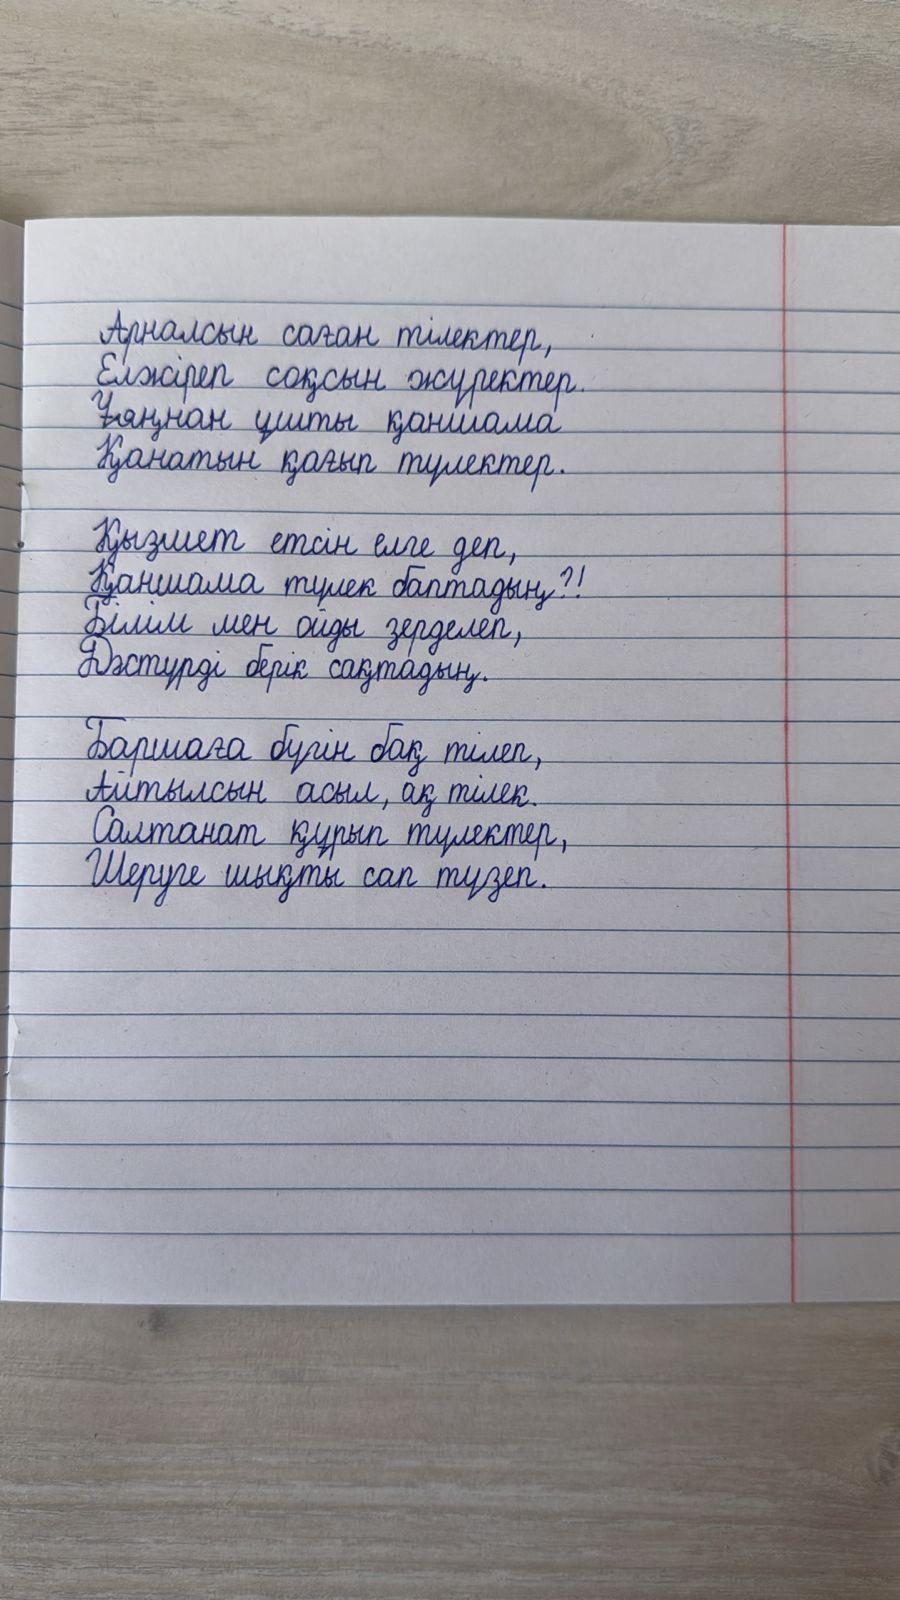 Арналсын саған тілектер,
Елжіреп соқсын жүректер.
Ұяңнан ұшты қаншама
Қанатын қағып түлектер.
Қызмет етсін елге деп,
Қаншама түлек баптадың?!
Білім мен ойды зерделеп,
Дәстүрді берік сақтадың.
Баршаға бүгін бақ тілеп,
Айтылсын асыл, ақ тілек.
Салтанат құрып түлектер,
Шеруге шықты сап түзеп.